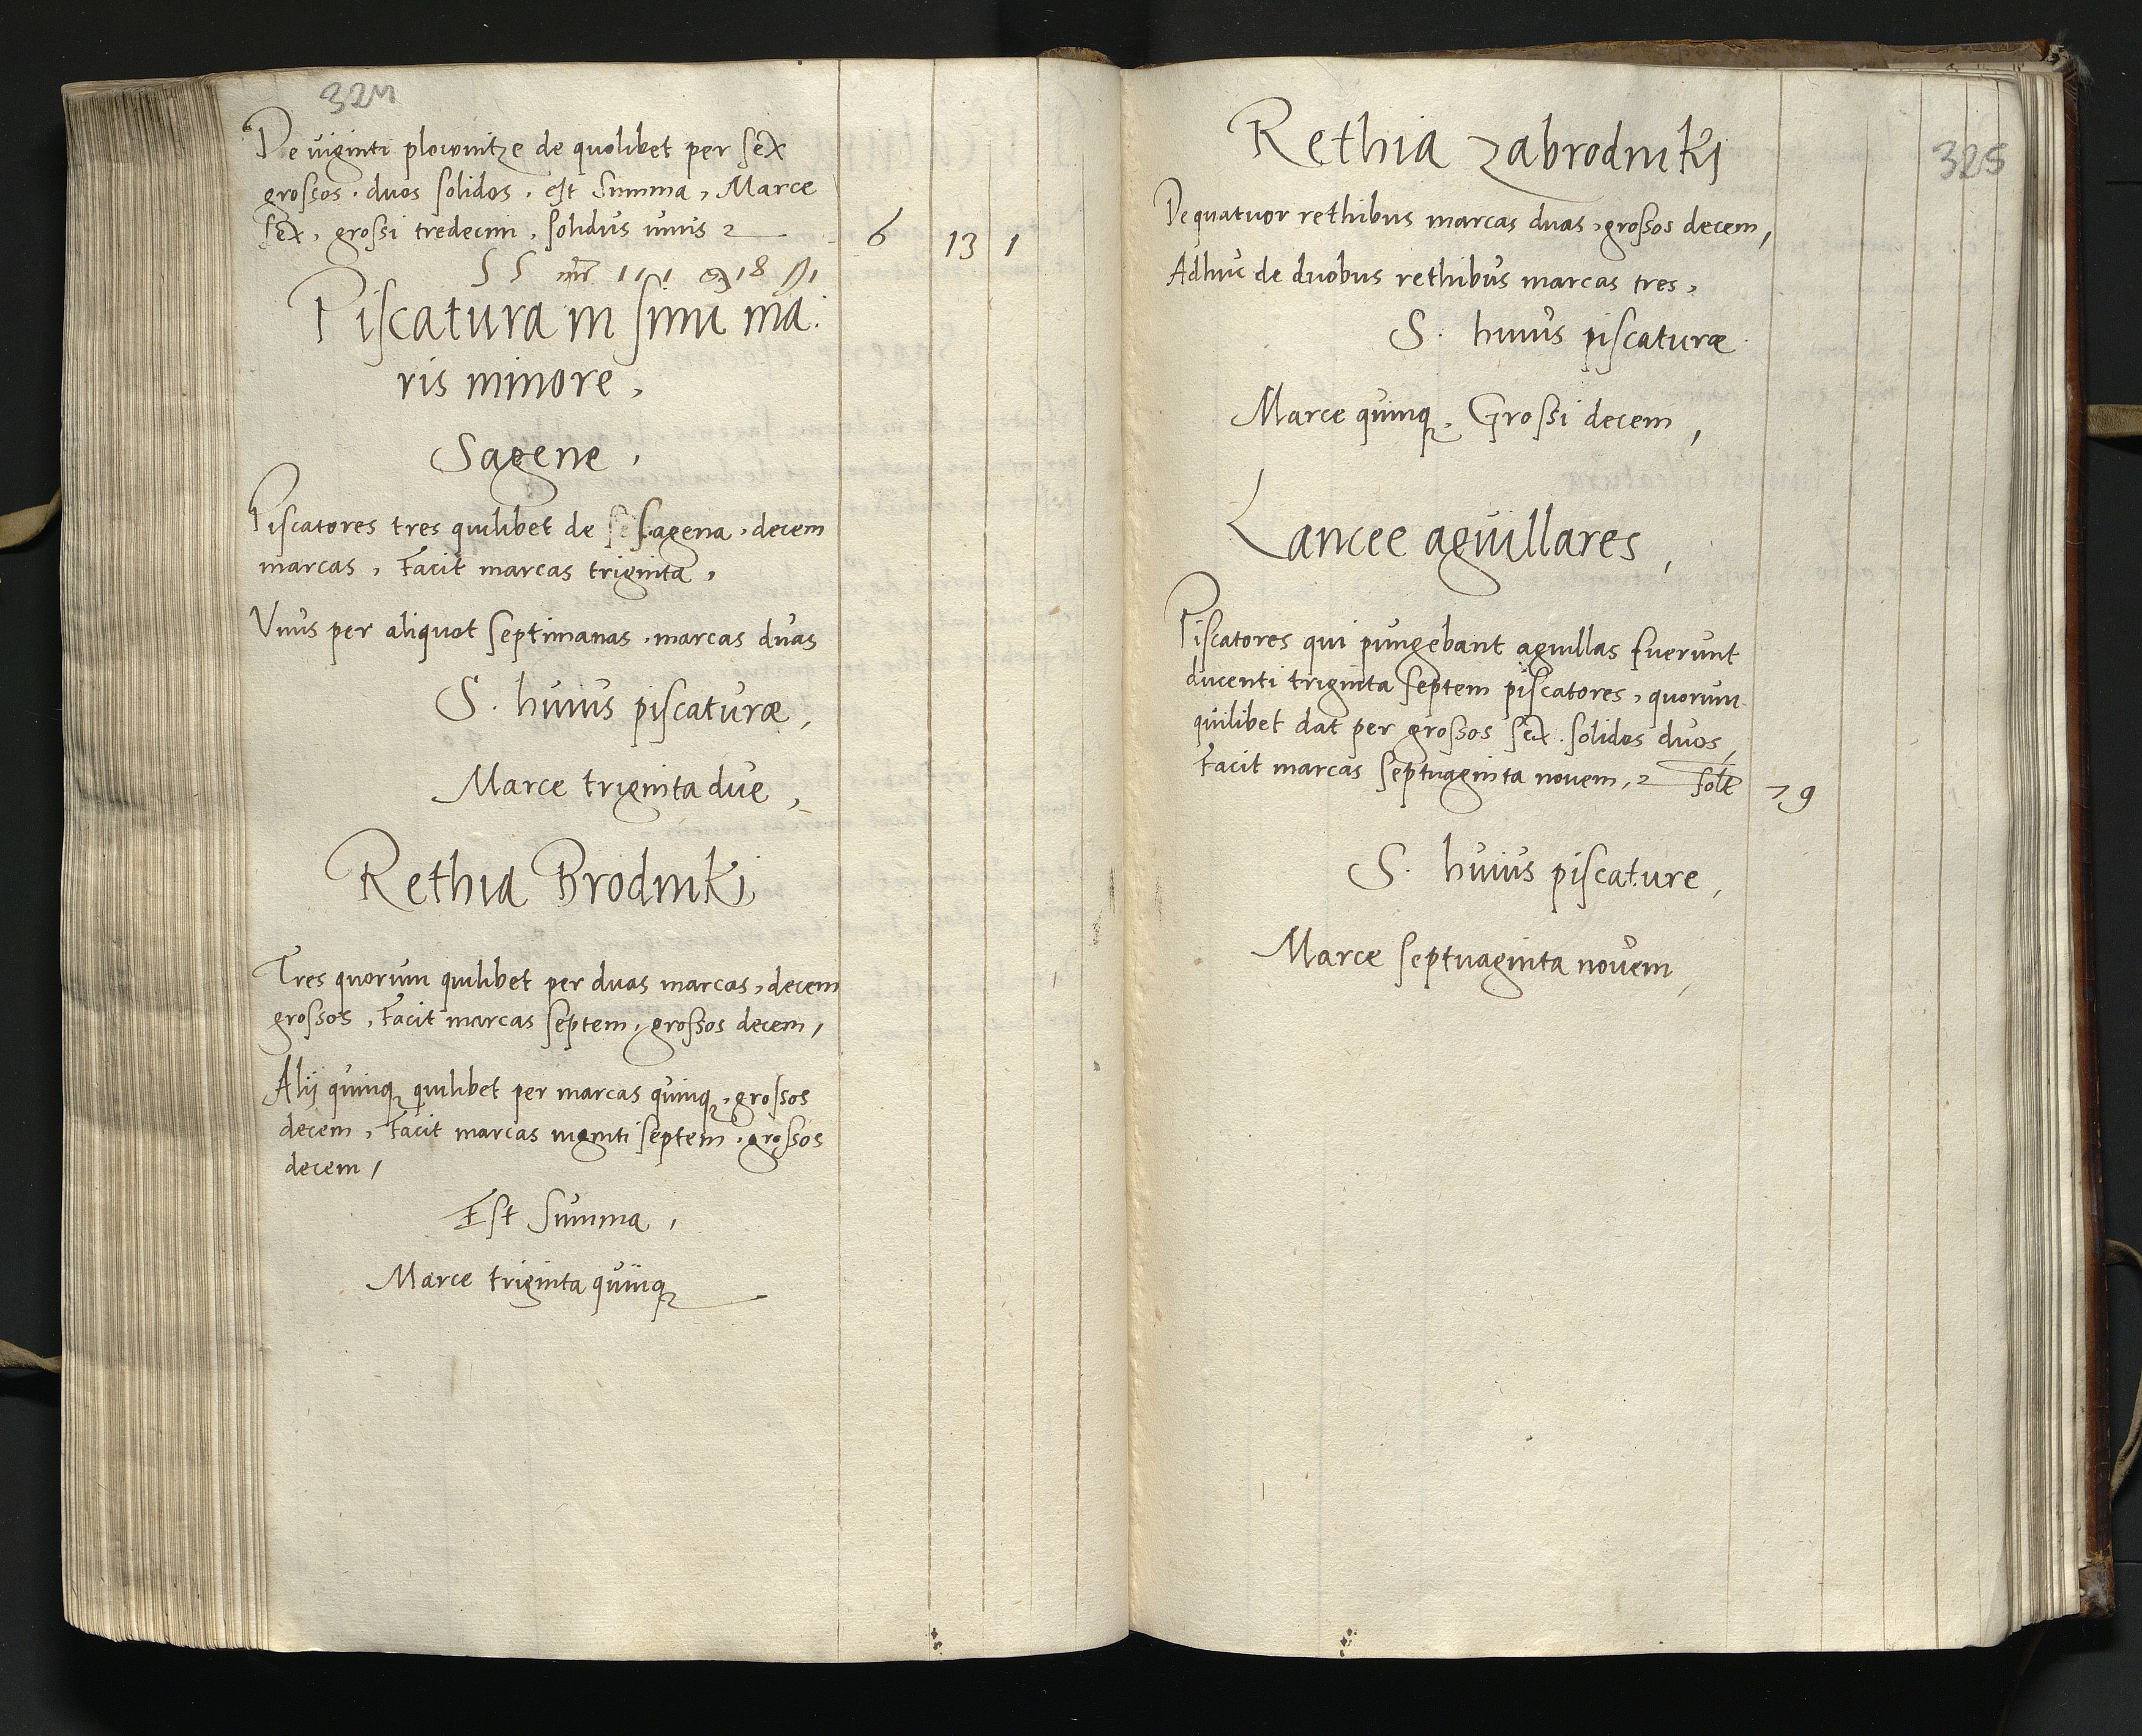 324
De uiginti plownitze de quolibet per sex
grossos. duos solidos. est Summa, Marce
Sex, grossi tredecim, solidus unus 6 13 1
SS 111 18 1
Piscatura in sinu ma.
ris minore,
Sagene,
Piscatores tres quilibet de sagena, decem
marcas, Facit marcas triginta,
Vnus per aliquot septimanas, marcas duas
S. huius piscaturæ,
Marce triginta due,
Rethia Brodniki
Tres quorum quilibet per duas marcas, decem
grossos, Facit marcas septem, grossos decem,
Alij quinq quilibet per marcas quinq, grossos
decem, Facit marcas uiginti septem, grossos
decem,
Est Summa,
Marce triginta quinq
325
Rethia zabrodniki
De quatuor rethibus marcas duas, grossos decem,
Adhuc de duobus rethibus marcas tres,
S. huius piscaturæ
Marce quinq, Grossi decem,
Lancee aguillares,
Piscatores qui pungebant aguillas fuerunt
ducenti triginta septem piscatores, quorum
quilibet dat per grossos sex. solidos duos,
Facit marcas septuaginta novem, 79
S. huius piscature,
Marce septuaginta novem,